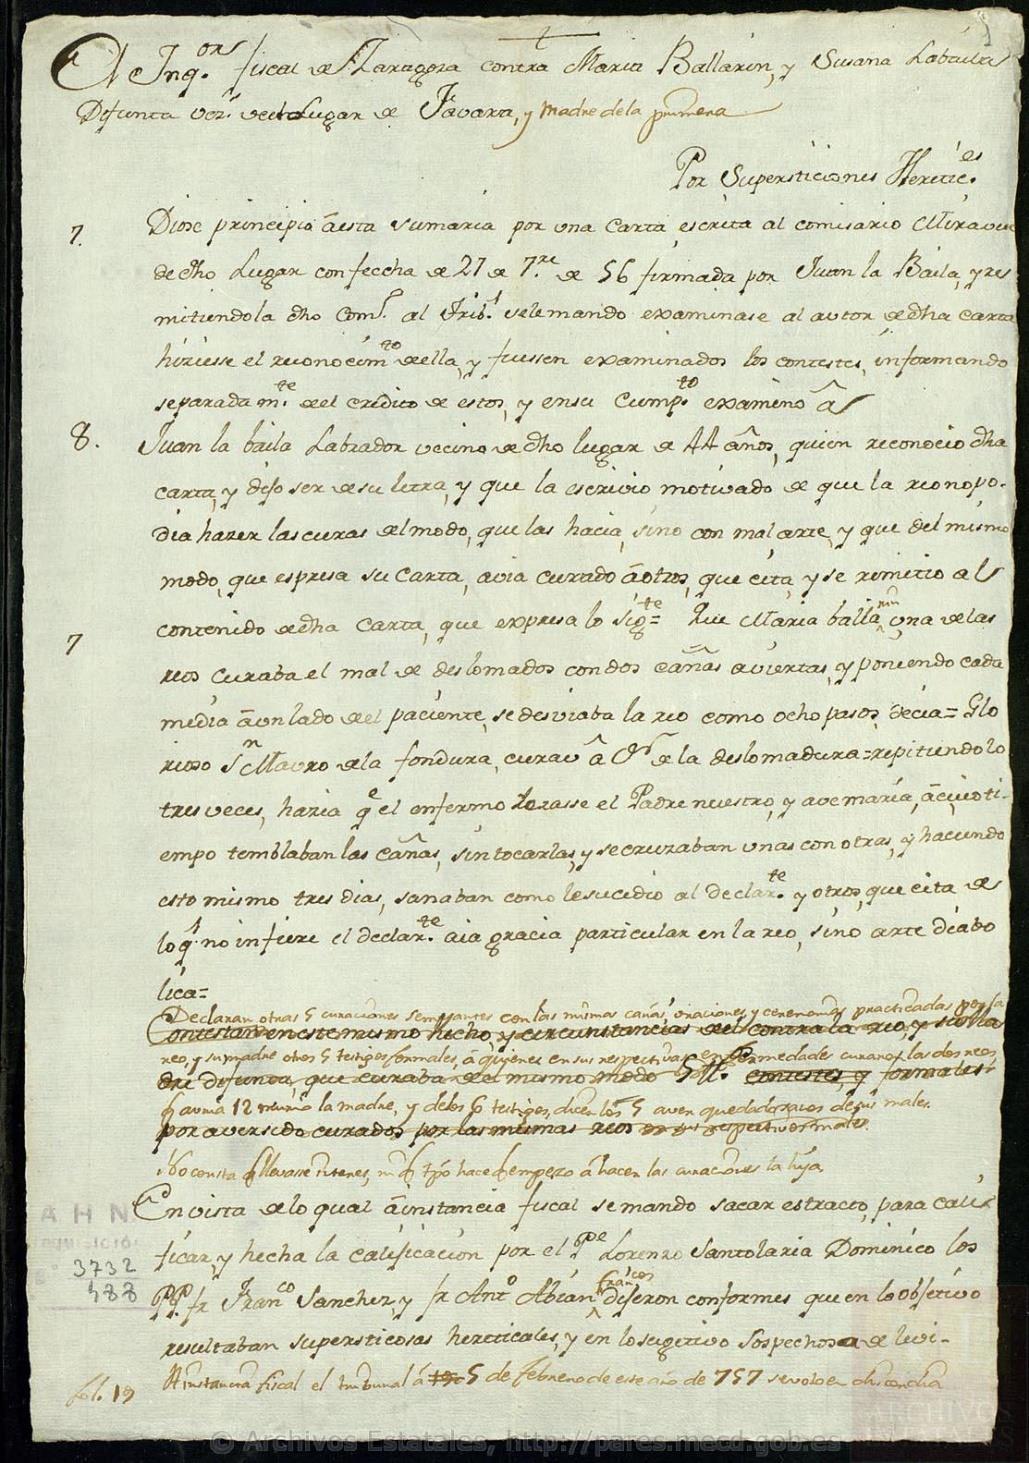 El Inq.or fiscal de Zaragoza contra Maria Ballarin, y Susana Labaila
Difunta vez.ª de el Lugar de Javarta, y Madre dela primera
Por Supersticiones Heretic.es
7. Diose principio â esta sumaria por una Carta escrita al comisario
de dho Lugar con feccha de 27 de 7.re de 56 firmada por Juan la Baila, y re
mitiendola dho Com.º al Trib.l se le mando examinase al autor de dha carta
hiziesse el reconocim.to de ella, y fuessen examinados los contestes, informando
separadam.te de el credito de estos, y en su Cump.to examino â
8. Juan la baila Labrador vecino de dho lugar de 44 años, quien reconocio dha
carta, y dijo ser de su letra, y que la escrivio motivado de que la reo no po-
dia hazer las curas del modo, que las hacia, sino con mal arte, y que del mismo
modo, que espresa su carta, avia curado â otros, que cita, y se remitio al
contenido de dha Carta, que expresa lo sig.te= Que Maria ballarin una de las
7 reos curaba el mal de deslomados con dos cañas aviertas, y poniendo cada
media â un lado de el paciente, se desviaba la reo como ocho pasos, decia= Glo
rioso Sn Mauro de la fondura, curav â de la deslomadura= repitiendolo
tres veces, hazia q.e el enfermo rezasse el Padre nuestro, y ave maria, â cuio ti-
empo temblaban las cañas, sin tocarlas, y se cruzaban unas con otras, y haciendo
esto mismo tres dias, sanaban como le sucedio al declar.te y otros, que cita de
lo q.l no infiere el declar.te aia gracia particular en la reo, sino arte diabo
lica=
Declaran otras 5 curaciones semejantes con las mismas cañas, oraciones y ceremonias practicadas por la
Contestan en este mismo hecho, y circunstancias de el contra la reo, y su Ma
reo, y su madre otros 5 testigos formales, â quienes en sus respectivas enfermedades curaron las dos reos,
dre difunta, que curaba de el mismo modo 5 tt. contestes, y formales
 12 la madre, y delos 6 testigos, dicen los 5 aver quedado sanos de sus males.
por aver sido curados por las mismas reos en sus respectivos males.
No consta llevasse interes, ni tpo hace empezo â hacer las curaciones la hija
En vista de lo qual â instancia fiscal se mando sacar estracto, para cali
ficar, y hecha la calificacion por el P.e Lorenzo Santolaria Dominico los
PP. fr Fran.co Sanchez, y fr Ant.o Abian Fran.cos dijeron conformes que en lo objetivo
resultaban supersticosas hereticales, y en lo sugetivo sospechosa de levi-
fol. 19 A instancia fiscal el tribunal â 5 de febrero de este año de 757 se voto en discordia
A H N
INQUISICION
3732
488
ARCHIVOS
© Archivos Estatales, http://pares.mecd.gob.es